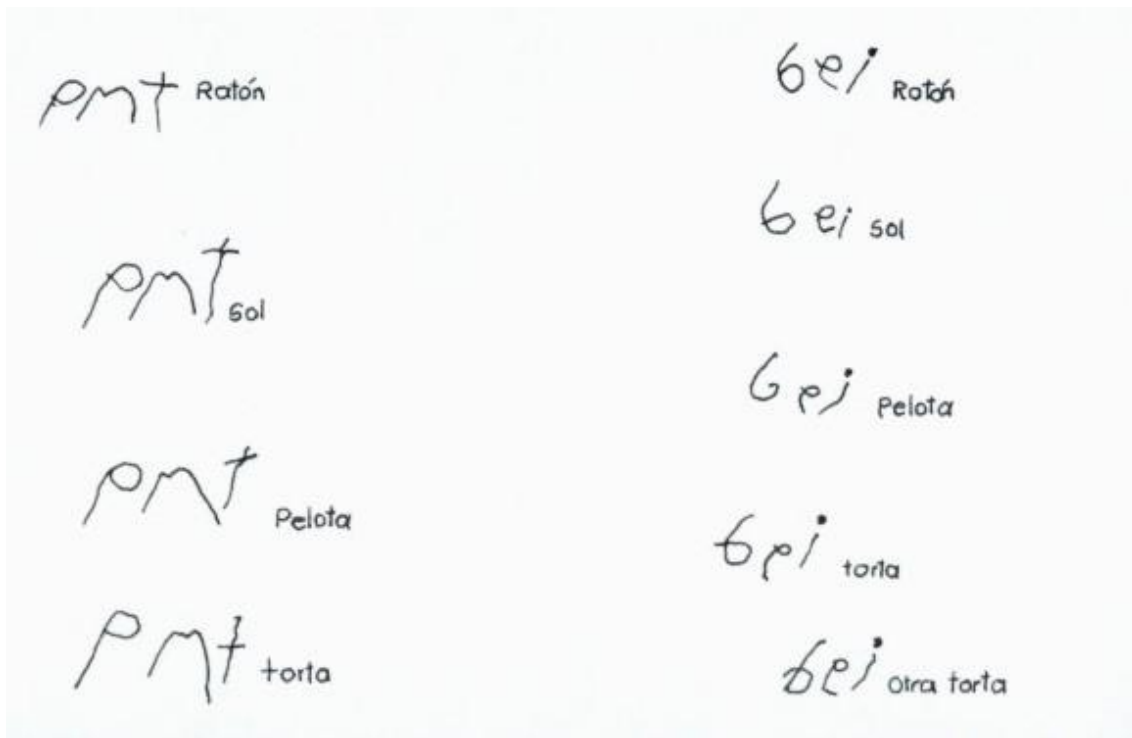 pmt Ratón
pmt Sol
pmt Pelota
pmt torta
6ei Ratón
6ei sol
6ei Pelota
6ei torta
6ei otra torta